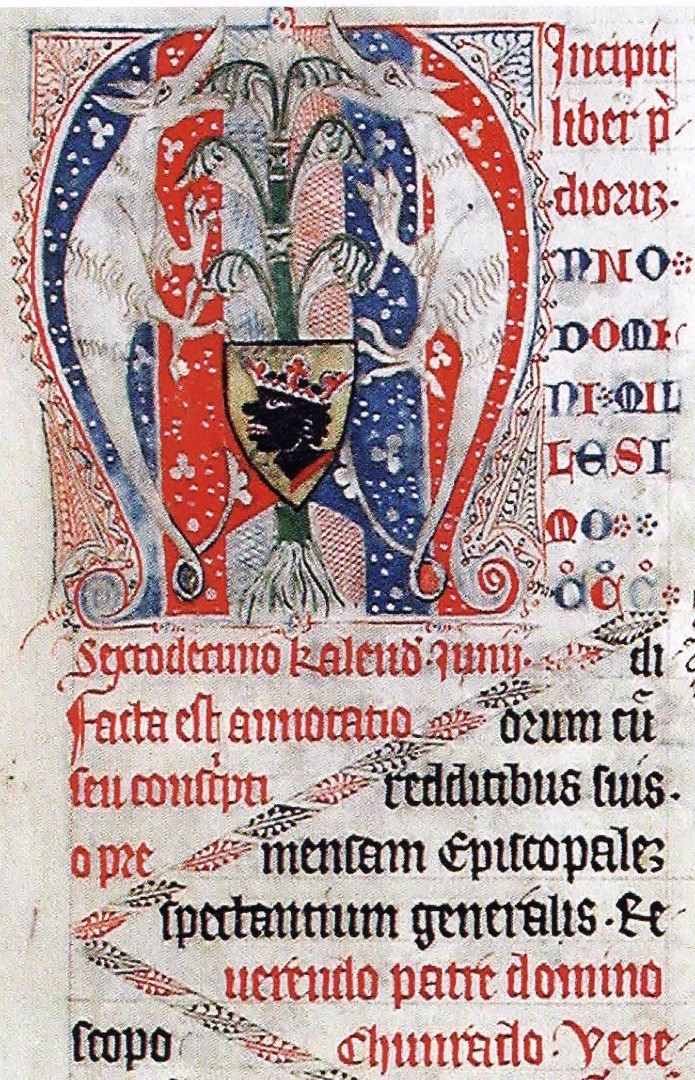 Incipit
liber p̄
dioruz.
ANNO
DOMI
NI·MIL
LESI
MO
CCC
Sextodecimo kalend. Junij. di
Facta est annotatio orum cū
seu conscͥpti redditibus suis.
o pre mensam Episcopalez
spectantium generalis. Re
uerendo patre domino
scopo Chunrado. Vene